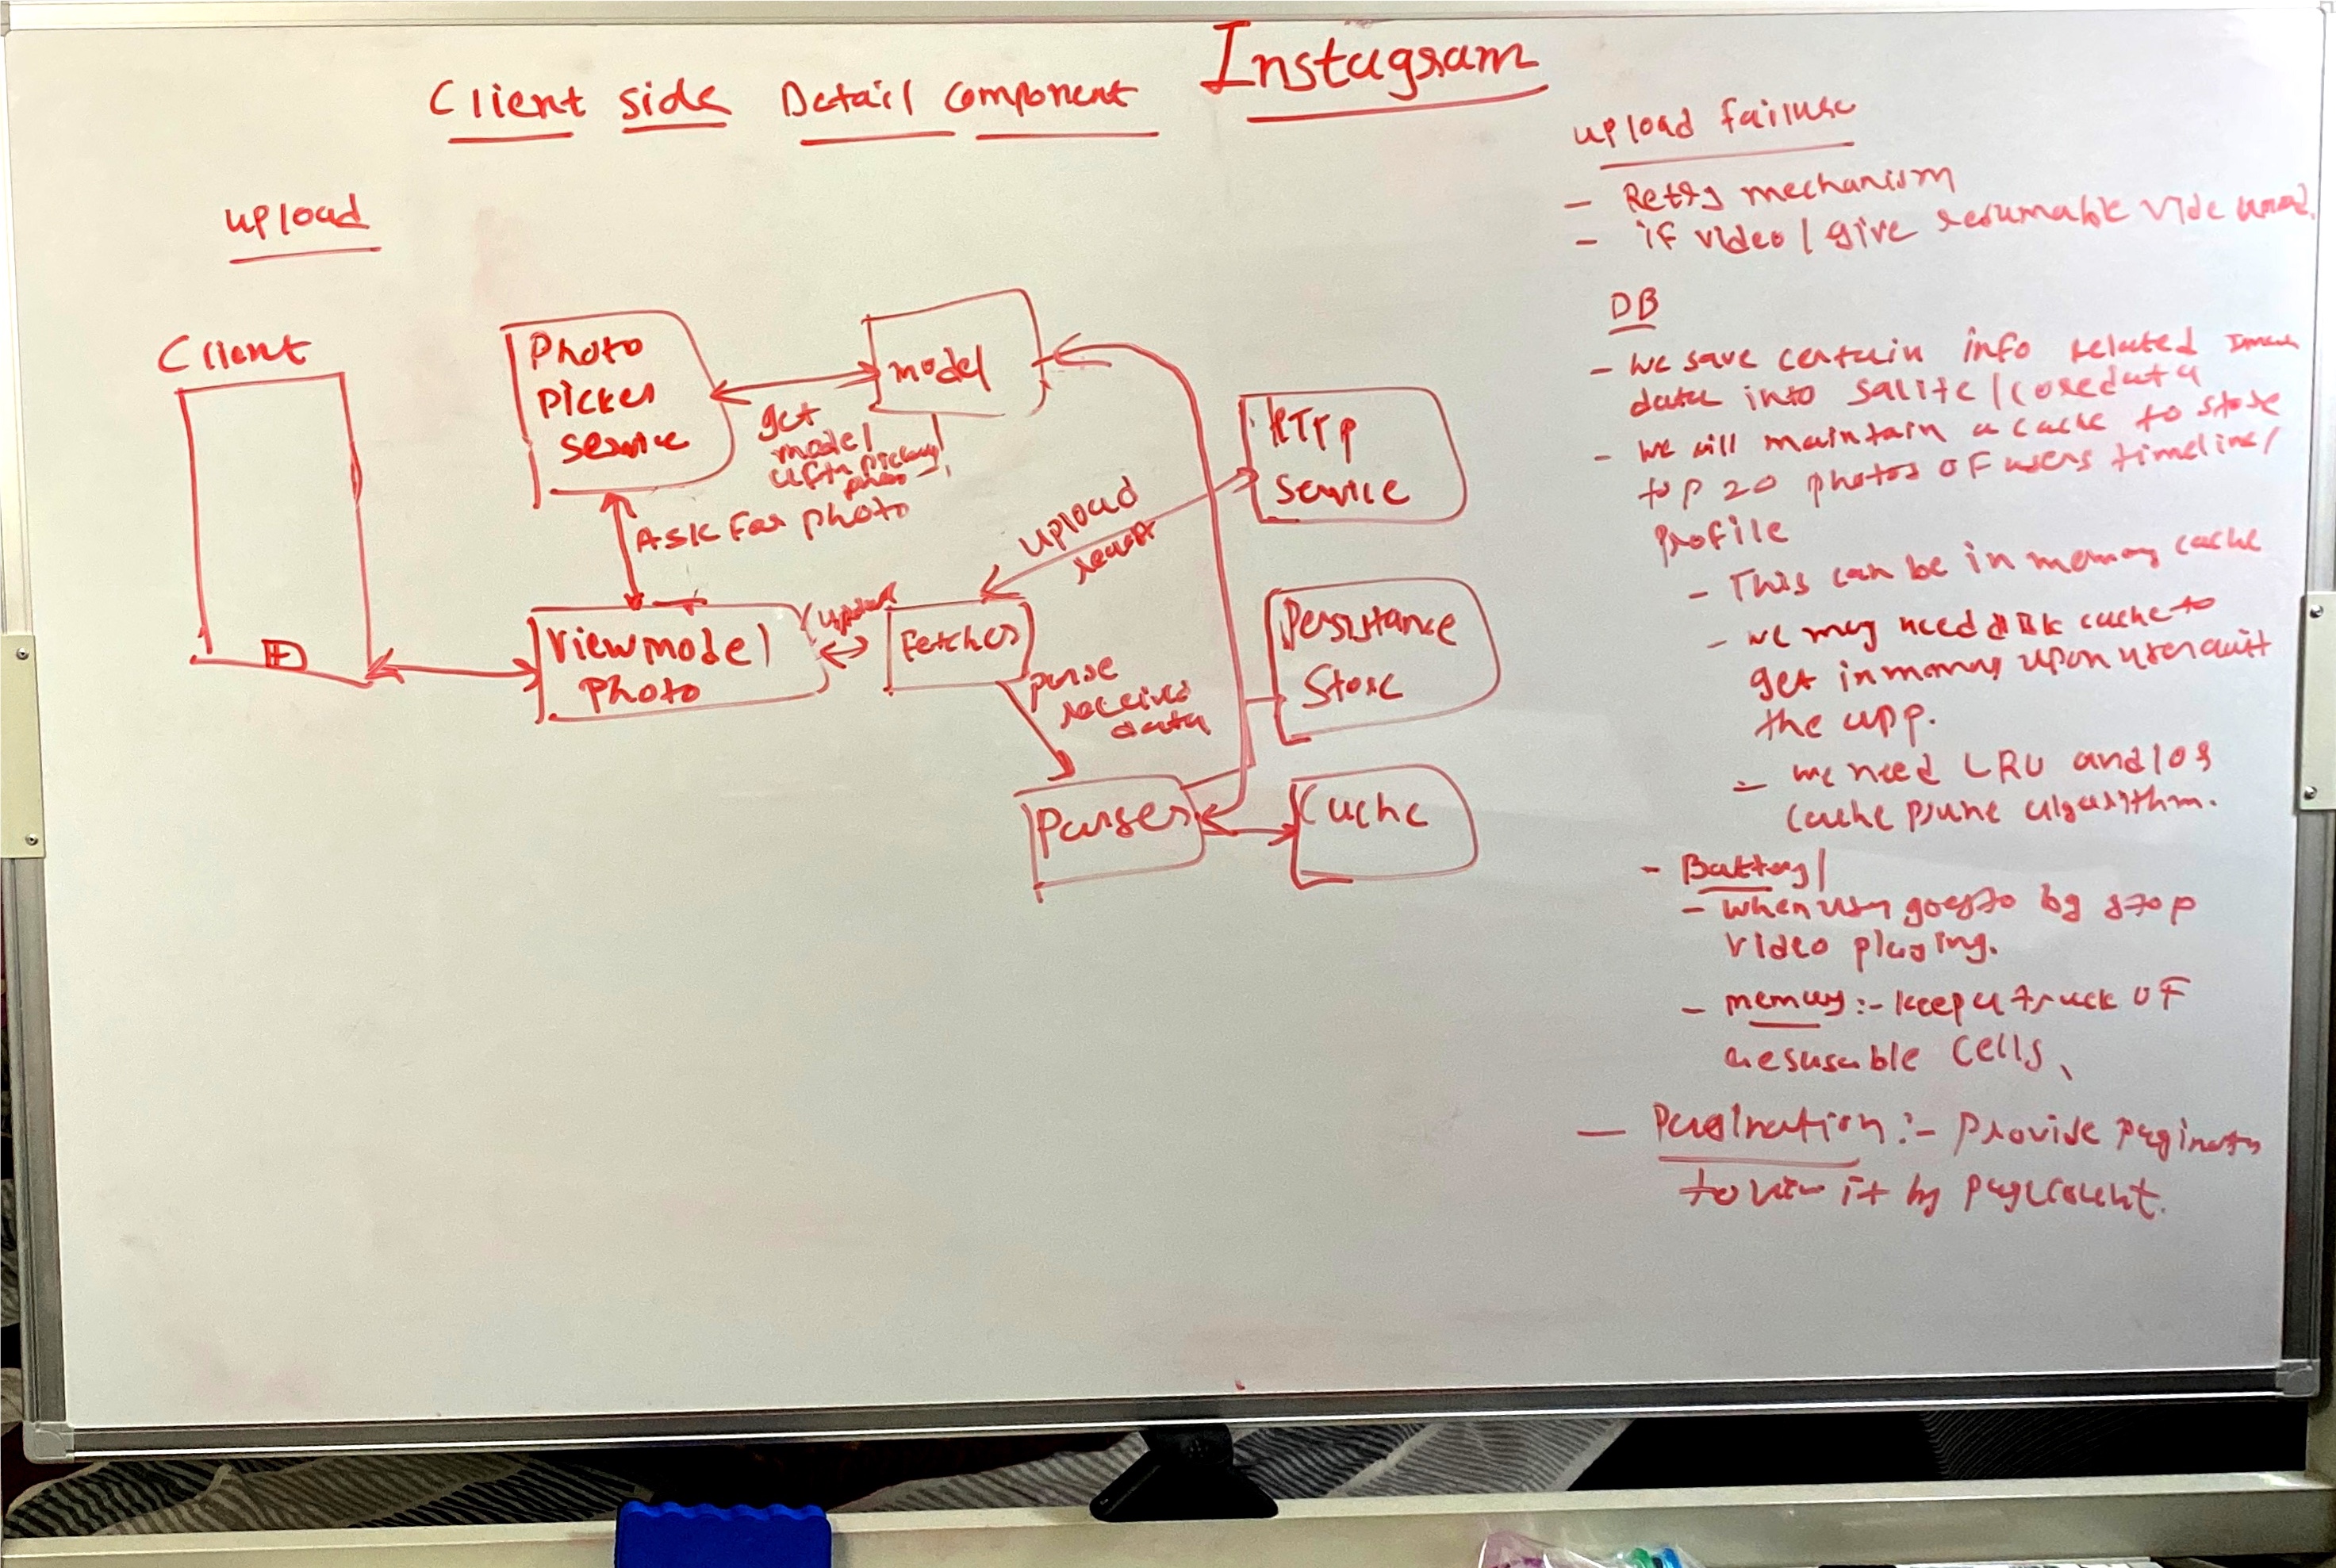 Client side Detail Component Instagram
upload
Client
Photo
Picker
service
model
get
model
ASK For photo
HTTP
service
upload
viewmodel
photo
Fetcher
parse
received
data
Persistance
Store
Parser
Cache
upload failure
- Retry mechanism
- if video / give resumable vide
DB
- we save certain info related
data into Sqlite / coredata
- we will maintain a cache to store
top 20 photos of users timeline /
profile
- This can be in memory cache
- we may need disk cache to
get in memory upon user quit
the app.
- we need LRU and/or
cache prune algorithm.
- Battery /
- when user goes to bg stop
video playing.
- memory :- keep a track of
cells,
- Pagination :- Provide
to view it by pagecount.